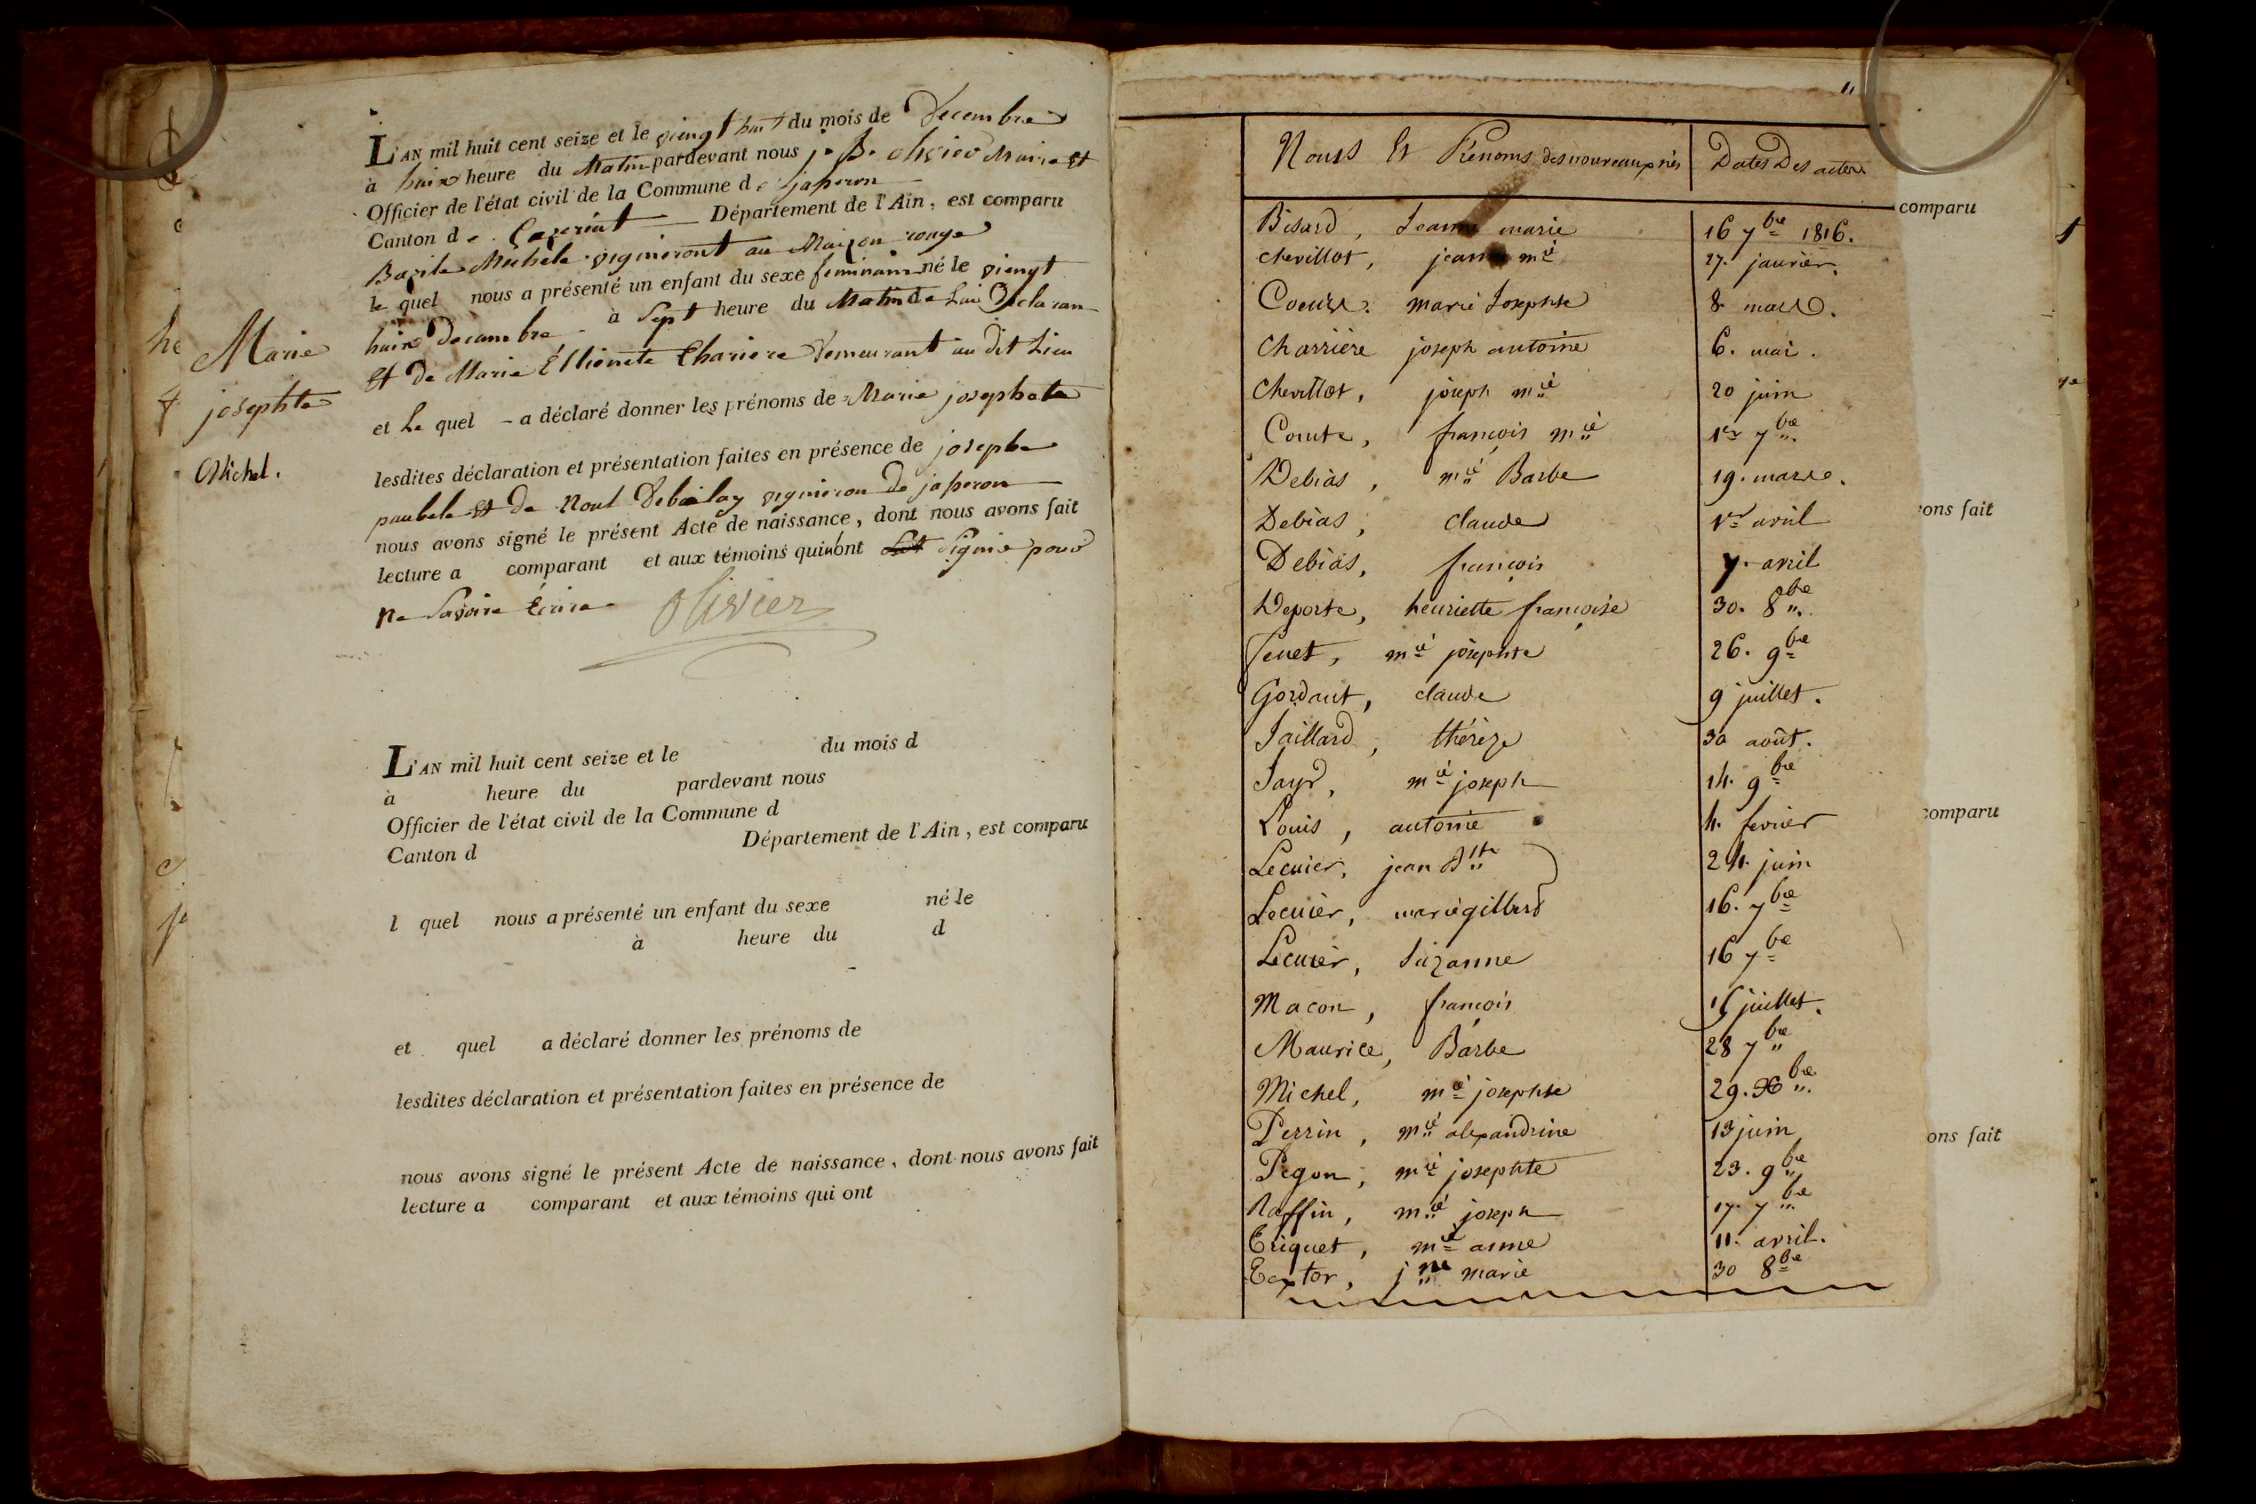 L'AN mil huit cent seize et le viengt huit du mois de Decembre
à huix heure du Matin pardevant nous j. B. olivier Maire Et
Officier de l'état civil de la Commune de jasseron
Canton de Ceyzeriat Département de l'Ain, est comparu
Bazile Michele vigneront au Maizon rouge
le quel nous a présenté un enfant du sexe feminain né le viengt
huix Decembre à Sept heure du Matin de Lui Declaran
Et de Marie Charière demeurant au dit Lieu
et Le quel a déclaré donner les prénoms de Marie josephete
lesdites déclaration et présentation faites en présence de josephe
paubele Et de Noul Debailay vigneron de jasseron
nous avons signé le présent Acte de naissance, dont nous avons fait
lecture a comparant et aux témoins qui n'ont Signié pour
Ne Savoire Ecrire
Olivier
Marie
josephte
Michel.
L'AN mil huit cent seize et le du mois d
à heure du pardevant nous
Officier de l'état civil de la Commune d
Canton d Département de l'Ain, est comparu
l quel nous a présenté un enfant du sexe né le
à heure du d
et quel a déclaré donner les prénoms de
lesdites déclaration et présentation faites en présence de
nous avons signé le présent Acte de naissance, dont nous avons fait
lecture a comparant et aux témoins qui ont
Noms Et Prénoms des nouveaux nés Dates Des actes
Bisard, Jeanne marie 16 7bre 1816.
chevillot, jean mie 27. janvier.
Coeur. marie Josephte 8 mars.
Charrière joseph antoine 6. mai.
Chevillot, joseph mie 20 juin
Comte, françois mie 1er 7bre
Debias, mie Barbe 19. mars.
Debias, claude 1er avril
Debias, françois 7. avril
Deporte, henriette françoise 30. 8bre
fenet, mie josephte 26. 9bre
Gordant, claude 9 juillet.
Jaillard, thérèze 30 août.
Jayr, mie joseph 14. 9bre
Louis, antoine 4. fevrier
Lecuier, jean Bte 24. juin
Lecuier, marie gilberd 16. 7bre
Lecuier, Suzanne 16 7bre
Macon, françois 15 juillet.
Maurice, Barbe 28 7bre
Michel, mie josephte 29. Xbre
Perrin, mie alexandrine 13 juin
Pegon, mie josephte 23. 9bre
Raffin, mie joseph 17. 7bre
Triquet, mie anne 11. avril.
Textor, jne marie 30 8bre
comparu
ons fait
comparu
ons fait